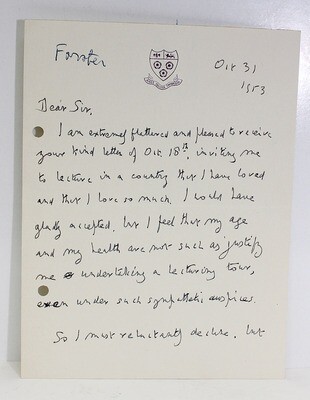 Forster
Oct 31
1953
Dear Sir,
I am extremely flattered and pleased to receive
your kind letter of Oct. 18th, inviting me
to lecture in a country that I have loved
and that I love so much. I would have
gladly accepted, but I feel that my age
and my health are not such as justify
me undertaking a lecturing tour,
even under such sympathetic auspices.
So I must reluctantly decline, but